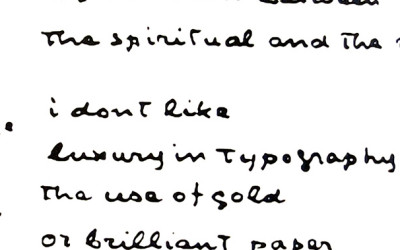 between
the spiritual and the
i dont like
luxury in typography
the use of gold
or brilliant paper